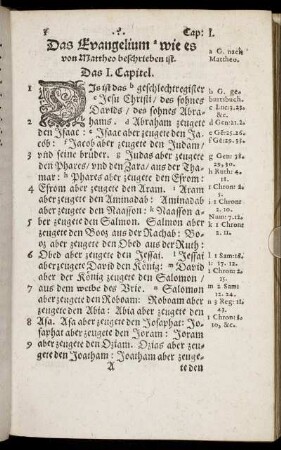 Cap: I.
Das Evangelium a wie es
von Mattheo beschrieben ist.
Das I. Capitel.
1 Dis ist das b geschlechtregister
Jesu Christi / des sohnes
Davids / des sohnes Abra-
2 hams. d Abraham zeugete
den Isaac: e Isaac aber zeugete den Ja-
cob: f Jacob aber zeugete den Judam /
3 und seine brüder. g Judas aber zeugete
den Phares / und den Zara / aus der Tha-
mar: h Phares aber zeugete den Esrom:
4 Esrom aber zeugete den Aram. Aram
aber zeugete den Aminadab: Aminadab
aber zeugete den Naasson: Naasson a-
5 ber zeugete den Salmon. Salmon aber
zeugete den Booz aus der Rachab: Bo-
oz aber zeugete den Obed aus der Ruth:
6 Obed aber zeugete den Jessai. Jessai
aber zeugete David den König: David
aber der König zeugete den Salomon /
7 aus dem weibe des Urie. Salomon
aber zeugete den Roboam: Roboam aber
zeugete den Abia: Abia aber zeugete den
8 Asa. Asa aber zeugete den Josaphat: Jo-
saphat aber zeugete den Joram: Joram
9 aber zeugete den Oziam. Ozias aber zeu-
gete den Joatham: Joatham aber zeuge-
A te den
a G. nach
Mattheo.
b G. ge-
burtsbuch.
c Luc: 3.23.
&c.
d Gen: 21.2.
e Gē: 25.26.
f Gē: 29.35.
g Gen: 38.
29, 30.
h Ruth: 4.
18.
i Chron: 2.
5.
i 1 Chron:
2. 10.
Num: 7.12.
k 1 Chron:
2. 11.
l 1 Sam: 16.
1. 17. 12.
1 Chron: 2.
15.
m 2 Sam:
12. 24.
n 3 Reg: 11.
43.
1 Chron: 3.
10, &c.